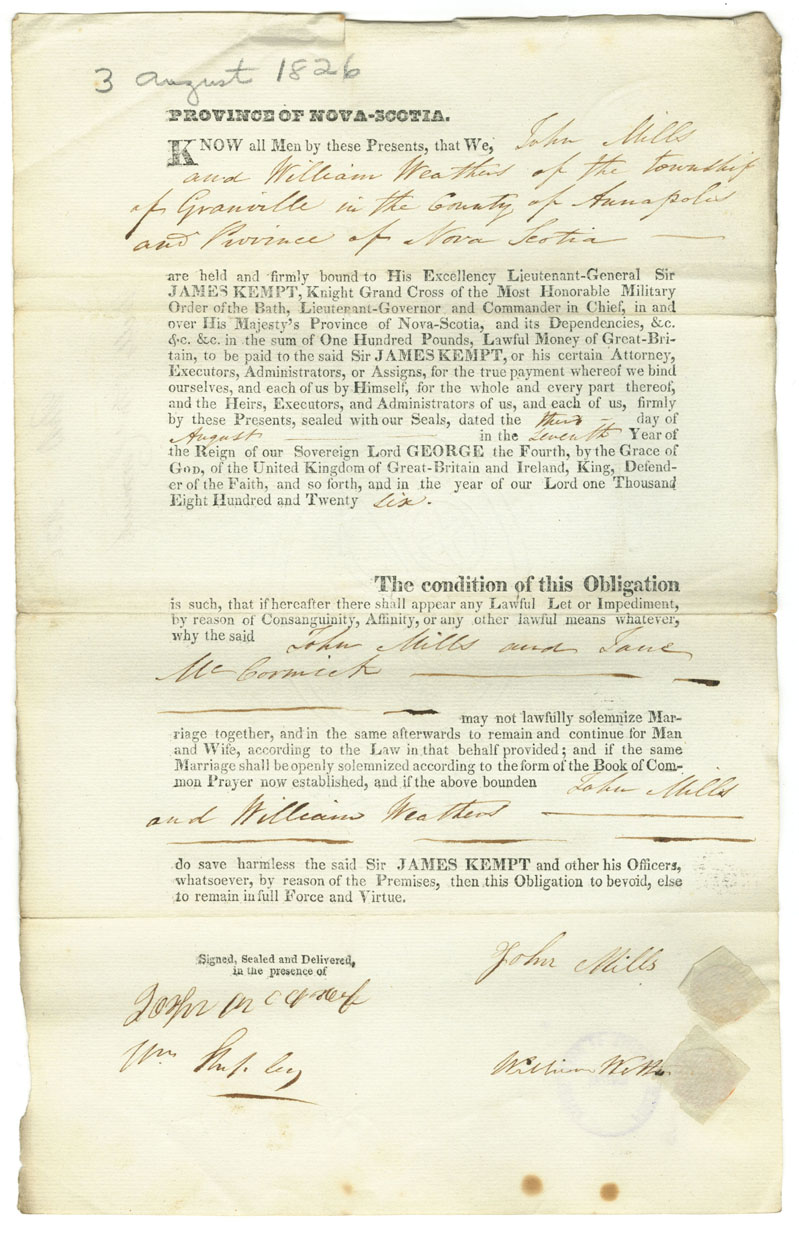 3 August 1826
PROVINCE OF NOVA-SCOTIA.
KNOW all Men by these Presents, that We, John Mills
and William Weathers of the township
of Granville in the County of Annapolis
and Province of Nova Scotia
are held and firmly bound to His Excellency Lieutenant-General Sir
JAMES KEMPT, Knight Grand Cross of the Most Honorable Military
Order of the Bath, Lieutenant-Governor and Commander in Chief, in and
over His Majesty's Province of Nova-Scotia, and its Dependencies, &c.
&c. &c. in the sum of One Hundred Pounds, Lawful Money of Great-Bri-
tain, to be paid to the said Sir JAMES KEMPT, or his certain Attorney,
Executors, Administrators, or Assigns, for the true payment whereof we bind
ourselves, and each of us by Himself, for the whole and every part thereof,
and the Heirs, Executors, and Administrators of us, and each of us, firmly
by these Presents, sealed with our Seals, dated the third day of
August in the Seventh Year of
the Reign of our Sovereign Lord GEORGE the Fourth, by the Grace of
GOD, of the United Kingdom of Great-Britain and Ireland, King, Defend-
er of the Faith, and so forth, and in the year of our Lord one Thousand
Eight Hundred and Twenty six.
The condition of this Obligation
is such, that if hereafter there shall appear any Lawful Let or Impediment,
by reason of Consanguinity, Affinity, or any other lawful means whatever,
why the said John Mills and Jane
McCormick
may not lawfully solemnize Mar-
riage together, and in the same afterwards to remain and continue for Man
and Wife, according to the Law in that behalf provided; and if the same
Marriage shall be openly solemnized according to the form of the Book of Com-
mon Prayer now established, and if the above bounden John Mills
and William Weathers
do save harmless the said Sir JAMES KEMPT and other his Officers,
whatsoever, by reason of the Premises, then this Obligation to be void, else
to remain in full Force and Virtue.
Signed, Sealed and Delivered,
in the presence of
John Mills
Wm
William